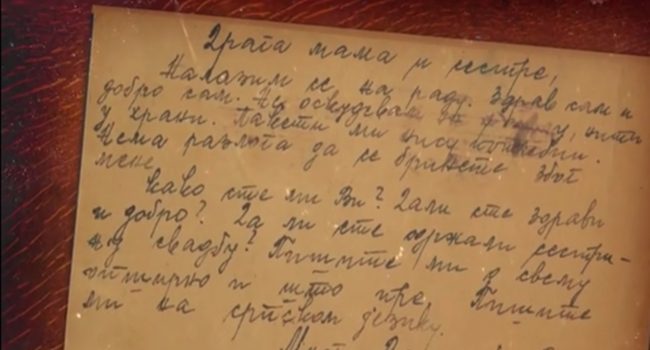 Драга мама и сестре,
Налазим се на раду. Здрав сам и
добро сам. Не оскудевам у, нити
у храни. Пакети ми нису потребни.
Нема разлога да се бринете због
мене.
Како сте ми Ви? Дали сте здрави
и добро? Да ли сте одржали сестри-
ну свадбу? Пишите ми о свему
опширно и што пре. Пишите
ми на српском језику.